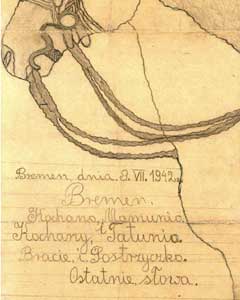 Bremen, dnia. 8. VII. 1942
Bremen.
Kochana, Mamunio.
Kochany, Tatunio.
Bracie, i, Sostrzyczko.
Ostatnie, słowa.